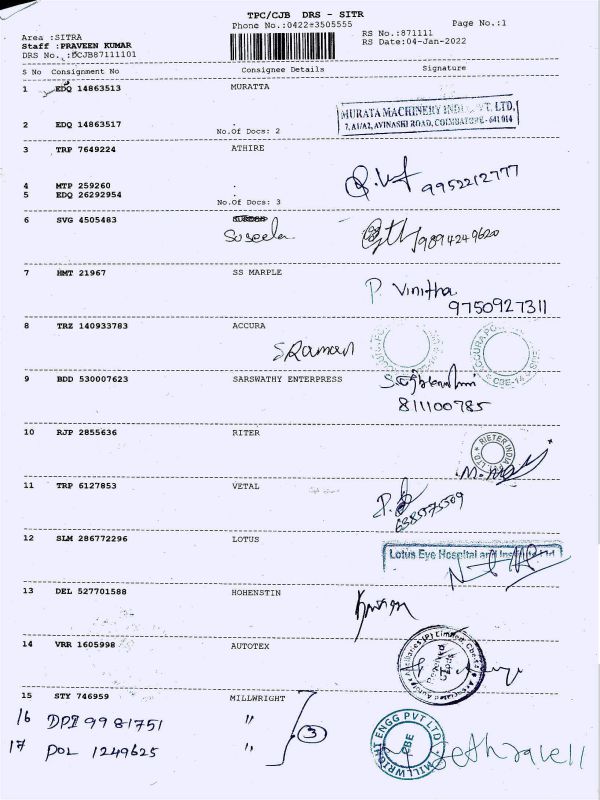 TPC/CJB DRS - SITR
Phone No.:0422-3505555 Page No.:1
Area :SITRA RS No.:871111
Staff :PRAVEEN KUMAR RS Date:04-Jan-2022
DRS No. :DCJB87111101
S No Consignment No Consignee Details Signature
1 EDQ 14863513 MURATTA
MURATA MACHINERY INDIA PVT. LTD,
2 EDQ 14863517 .
7, A1/A2, AVINASHI ROAD, COIMBATORE - 641 014
No.Of Docs: 2
3 TRP 7649224 ATHIRE
9952212777
4 MTP 259260 .
5 EDQ 26292954 .
No.Of Docs: 3
6 SVG 4505483
Suseela 9894249620
7 HMT 21967 SS MARPLE
P. Vinitha
9750927311
8 TRZ 140933783 ACCURA
SRaman
9 BDD 530007623 SARSWATHY ENTERPRESS
811100785
10 RJP 2855636 RITER
RIETER INDIA LTD.
11 TRP 6127853 VETAL
6385575509
12 SLM 286772296 LOTUS
Lotus Eye Hospital and Institute Ltd
13 DEL 527701588 HOHENSTIN
14 VRR 1605998 AUTOTEX
15 STY 746959 MILLWRIGHT
16 DPI 9981751 "
3
17 POL 1249625 "
MILLWRIGHT ENGG PVT LTD CBE